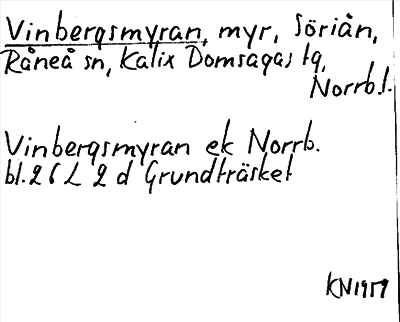 Vinbergsmyran, myr, Söriån,
Råneå sn, Kalix Domsagas tg,
Norrb.l.
Vinbergsmyran ek Norrb.
bl. 26 L 2 d Grundträsket
KN 1959